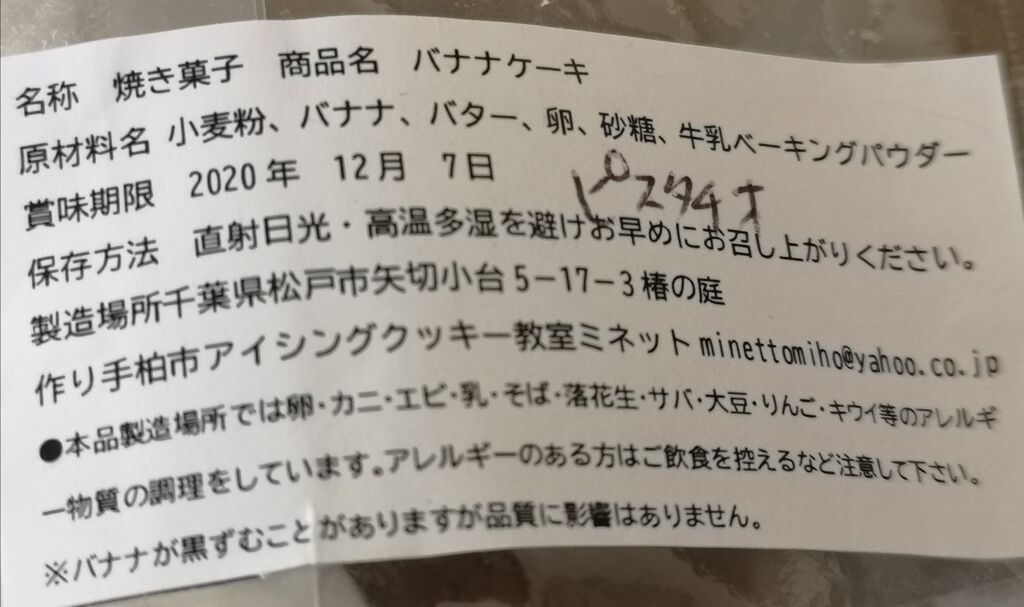 名称　焼き菓子　商品名　バナナケーキ
原材料名 小麦粉、バナナ、バター、卵、砂糖、牛乳ベーキングパウダー
ピスタチオ
賞味期限　2020年　12月　7日
保存方法　直射日光・高温多湿を避けお早めにお召し上がりください。
製造場所千葉県松戸市矢切小台5－17－3椿の庭
作り手柏市アイシングクッキー教室ミネットminettomiho@yahoo.co.jp
●本品製造場所では卵・カニ・エビ・乳・そば・落花生・サバ・大豆・りんご・キウイ等のアレルギ
ー物質の調理をしています。アレルギーのある方はご飲食を控えるなど注意して下さい。
※バナナが黒ずむことがありますが品質に影響はありません。